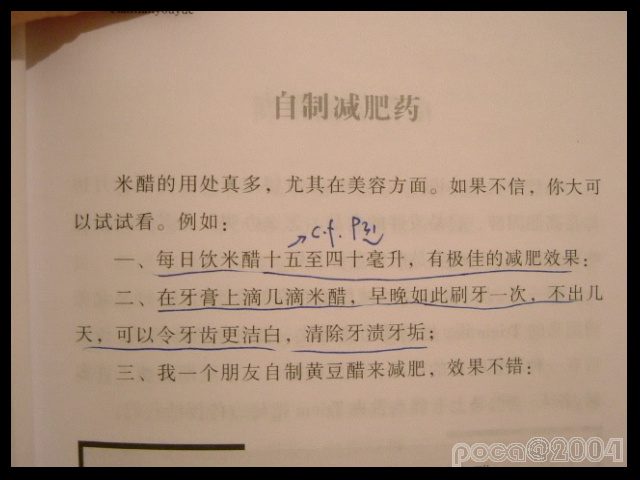 自制减肥药
米醋的用处真多，尤其在美容方面。如果不信，你大可
以试试看。例如：
c.f. P31
一、每日饮米醋十五至四十毫升，有极佳的减肥效果：
二、在牙膏上滴几滴米醋，早晚如此刷牙一次，不出几
天，可以令牙齿更洁白，清除牙渍牙垢；
三、我一个朋友自制黄豆醋来减肥，效果不错：
poca@2004